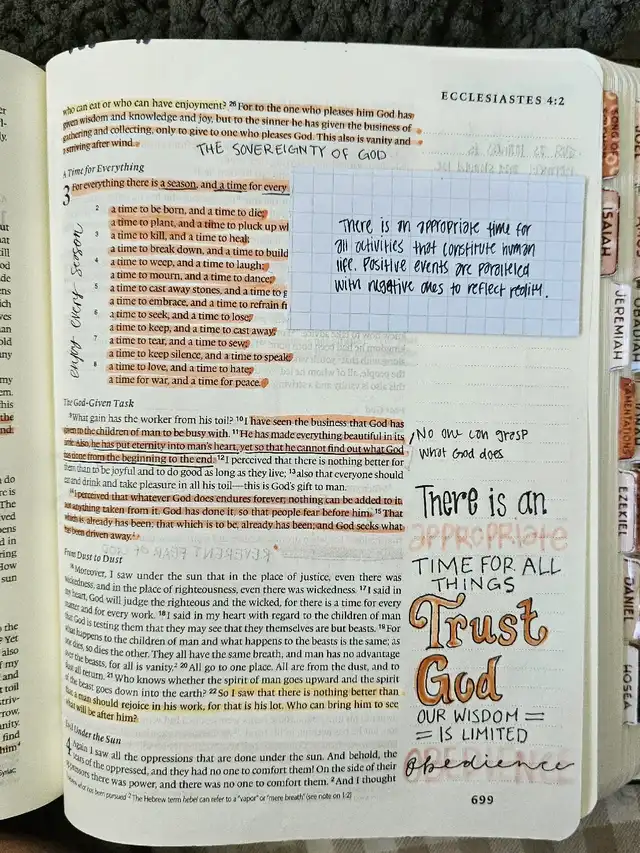 ECCLESIASTES 4:2
who can eat or who can have enjoyment? 26 For to the one who pleases him God has
given wisdom and knowledge and joy, but to the sinner he has given the business of
gathering and collecting, only to give to one who pleases God. This also is vanity and
a striving after wind.
THE SOVEREIGNTY OF GOD
A Time for Everything
3 For everything there is a season, and a time for every
2 a time to be born, and a time to die;
a time to plant, and a time to pluck up wh
3 a time to kill, and a time to heal;
a time to break down, and a time to build
4 a time to weep, and a time to laugh;
a time to mourn, and a time to dance;
5 a time to cast away stones, and a time to g
a time to embrace, and a time to refrain f
6 a time to seek, and a time to lose;
a time to keep, and a time to cast away;
7 a time to tear, and a time to sew;
a time to keep silence, and a time to speak;
8 a time to love, and a time to hate;
a time for war, and a time for peace.
enjoy every season
There is an appropriate time for
all activities that constitute human
life. Positive events are paralleled
with negative ones to reflect reality.
The God-Given Task
9 What gain has the worker from his toil? 10 I have seen the business that God has
given to the children of man to be busy with. 11 He has made everything beautiful in its
time. Also, he has put eternity into man's heart, yet so that he cannot find out what God
has done from the beginning to the end. 12 I perceived that there is nothing better for
them than to be joyful and to do good as long as they live; 13 also that everyone should
eat and drink and take pleasure in all his toil—this is God's gift to man.
14 I perceived that whatever God does endures forever; nothing can be added to it,
nor anything taken from it. God has done it, so that people fear before him. 15 That
which is, already has been; that which is to be, already has been; and God seeks what
has been driven away.
No one can grasp
what God does
From Dust to Dust
16 Moreover, I saw under the sun that in the place of justice, even there was
wickedness, and in the place of righteousness, even there was wickedness. 17 I said in
my heart, God will judge the righteous and the wicked, for there is a time for every
matter and for every work. 18 I said in my heart with regard to the children of man
that God is testing them that they may see that they themselves are but beasts. 19 For
what happens to the children of man and what happens to the beasts is the same; as
one dies, so dies the other. They all have the same breath, and man has no advantage
over the beasts, for all is vanity. 20 All go to one place. All are from the dust, and to
dust all return. 21 Who knows whether the spirit of man goes upward and the spirit
of the beast goes down into the earth? 22 So I saw that there is nothing better than
that a man should rejoice in his work, for that is his lot. Who can bring him to see
what will be after him?
Evil Under the Sun
4 Again I saw all the oppressions that are done under the sun. And behold, the
tears of the oppressed, and they had no one to comfort them! On the side of their
oppressors there was power, and there was no one to comfort them. 2 And I thought
2 The Hebrew term hebel can refer to a "vapor" or "mere breath" (see note on 1:2)
There is an
appropriate
TIME FOR ALL
THINGS
Trust
God
OUR WISDOM =
= IS LIMITED
Obedience
OBEDIENCE
699
SONG OF
ISAIAH
JEREMIAH
LAMENTATIONS
EZEKIEL
DANIEL
HOSEA